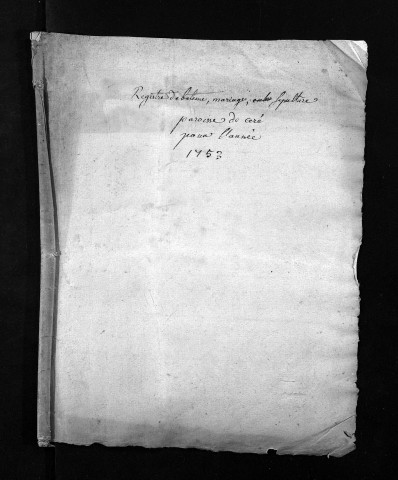 Registre de bateme, mariage, sepulture
paroisse de ceré
pour l'année
1753